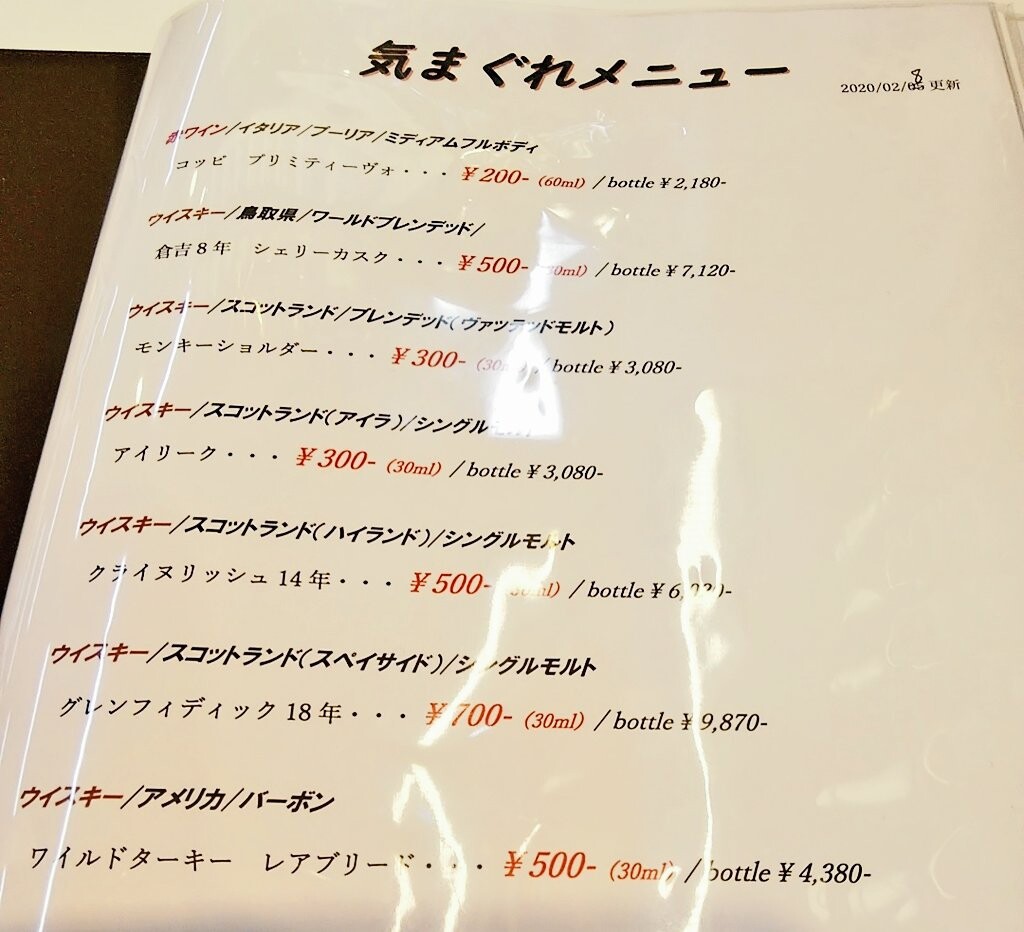 気まぐれメニュー
2020/02/08 更新
赤ワイン/イタリア/プーリア/ミディアムフルボディ
コッピ　プリミティーヴォ・・・￥200- (60ml) / bottle ￥2,180-
ウイスキー/鳥取県/ワールドブレンデッド/
倉吉8年　シェリーカスク・・・￥500- / bottle ￥7,120-
ウイスキー/スコットランド/ブレンデッド(ヴァッテッドモルト)
モンキーショルダー・・・￥300- (30ml) / bottle ￥3,080-
ウイスキー/スコットランド(アイラ)/シングル
アイリーク・・・￥300- (30ml) / bottle ￥3,080-
ウイスキー/スコットランド(ハイランド)/シングルモルト
クライヌリッシュ 14年・・・￥500- (30ml) / bottle
ウイスキー/スコットランド(スペイサイド)/シングルモルト
グレンフィディック 18年・・・￥700- (30ml) / bottle ￥9,870-
ウイスキー/アメリカ/バーボン
ワイルドターキー　レアブリード・・・￥500- (30ml) / bottle ￥4,380-